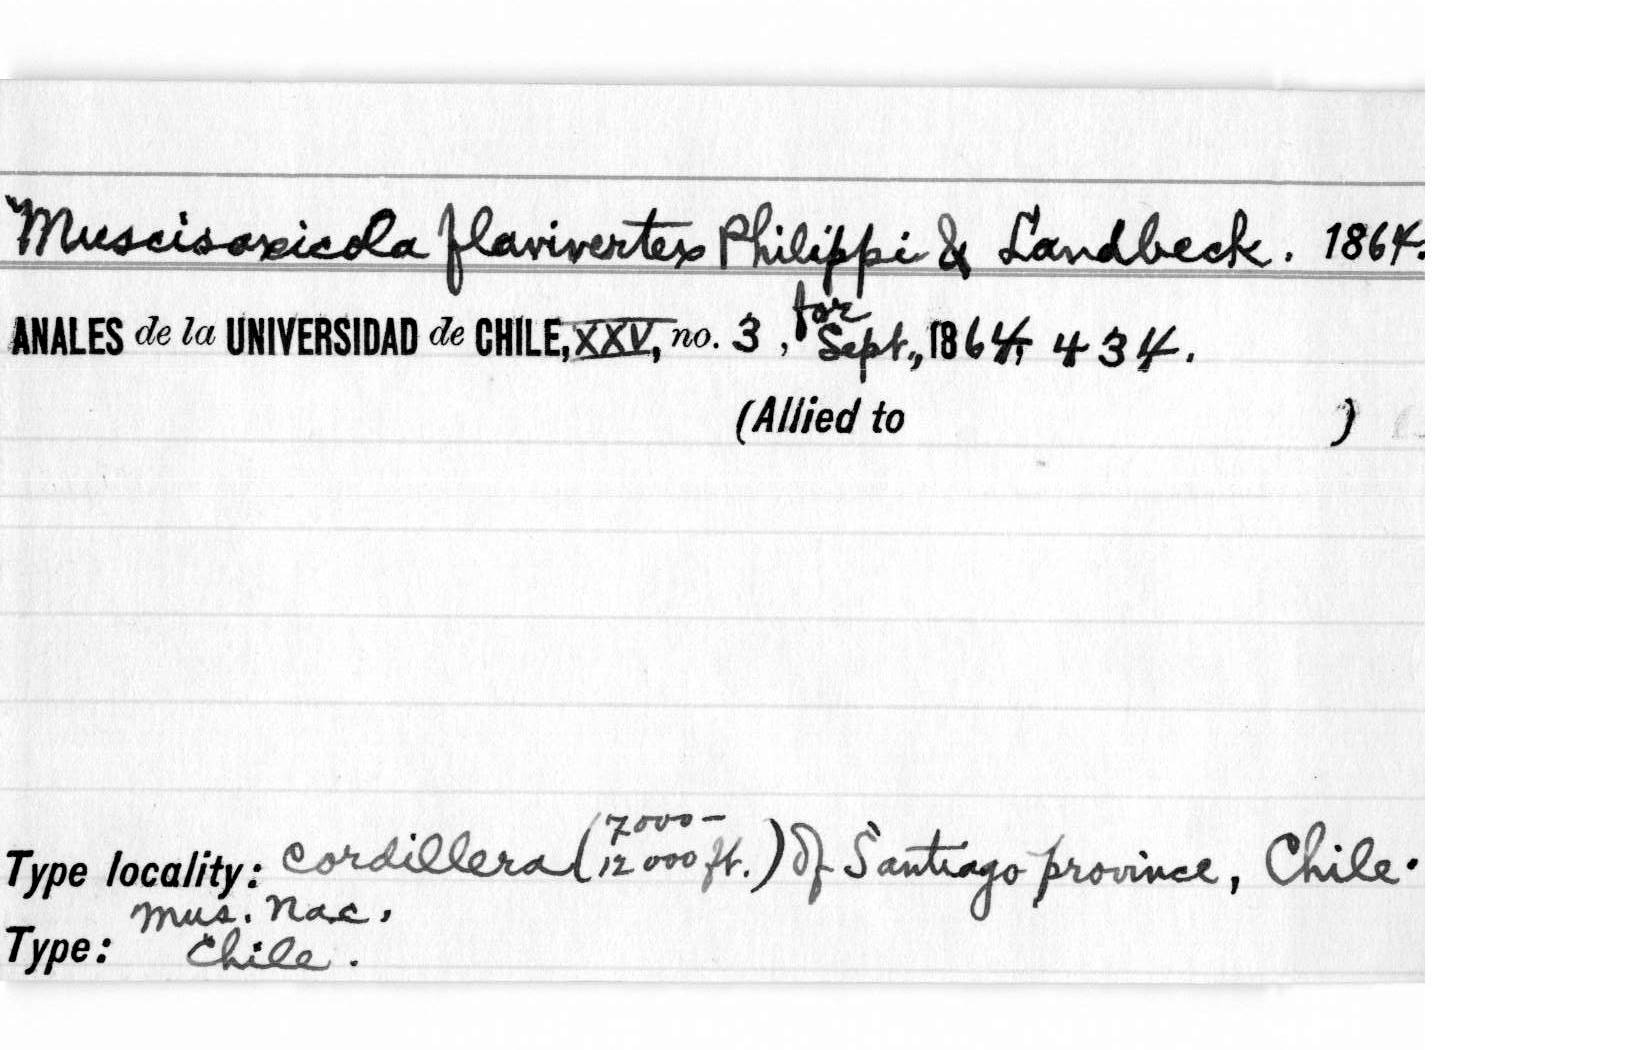 Muscisaxicola flavivertex Philippi & Landbeck. 1864.
ANALES de la UNIVERSIDAD de CHILE, XXV, no. 3, for Sept., 1864, 434.
(Allied to )
Type locality: cordillera (7000-12000 ft.) of Santiago province, Chile.
Type: Mus. Nac. Chile.